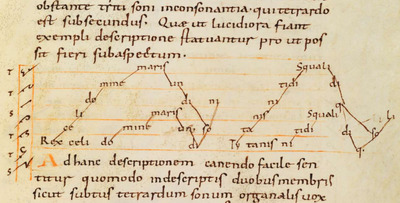 obstante triti soni inconsonantia. qui tetrardo
est subsecundus. Quæ ut lucidiora fiant
exempli descriptione statuantur pro ut pos
sit fieri subaspectum.
maris Squali
mine un tidi di
do di ni ni
li maris ta Squali li
ce un so di so
Rex celi do mine di Ti tanis ni tidi q;
Ad hanc descriptionem canendo facile sen
titur quomodo indescriptis duobus membris
sicut subtus tetrardum sonum organalis vox